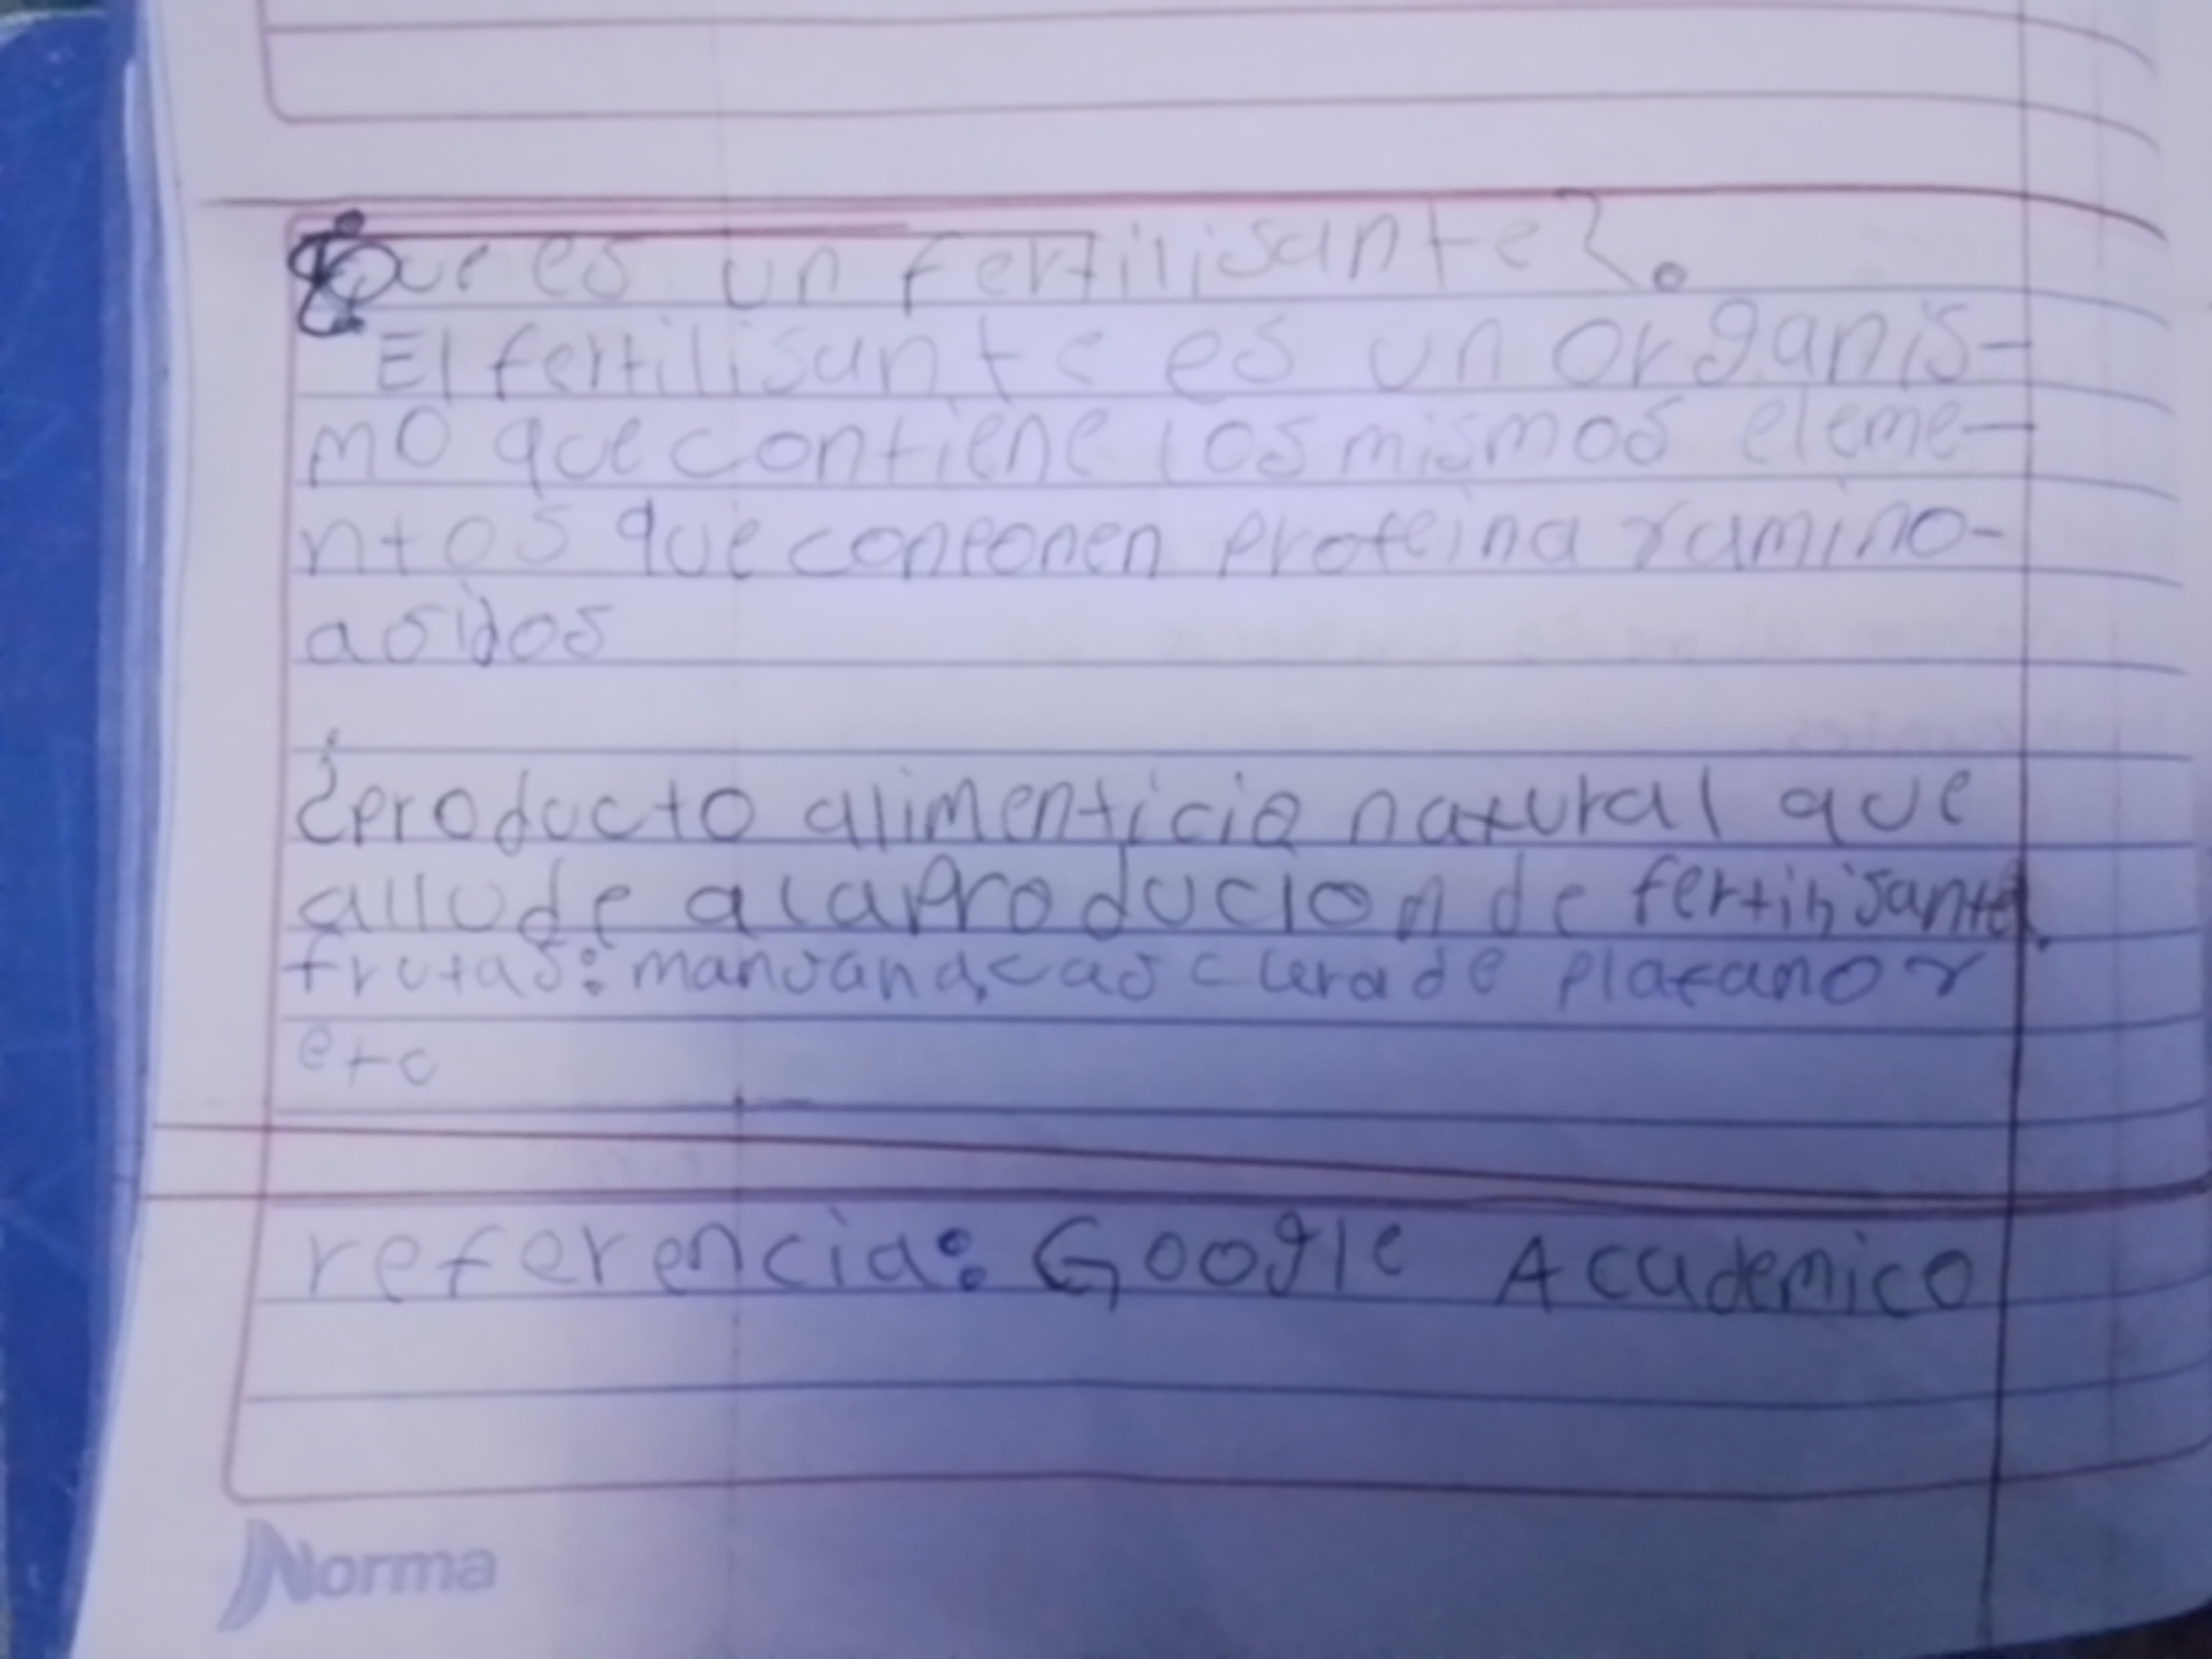 ¿Que es un fertilisante?.
El fertilisante es un organis-
mo que contiene los mismos eleme-
ntos que conponen proteina y amino-
asidos
¿producto alimenticio natural que
allude a la producion de fertilisante.
frutas: mansana, cascara de platano y
etc
referencia: Google Academico
Norma